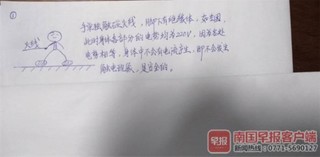 ①
手掌接触火线，脚下有绝缘体，右图，
此时身体各部分的电势均为220V，因为各处
电势相等，身体中不会有电流产生，即不会发生
触电现象，是安全的。
火线
南国早报客户端
新闻热线：0771-5690127